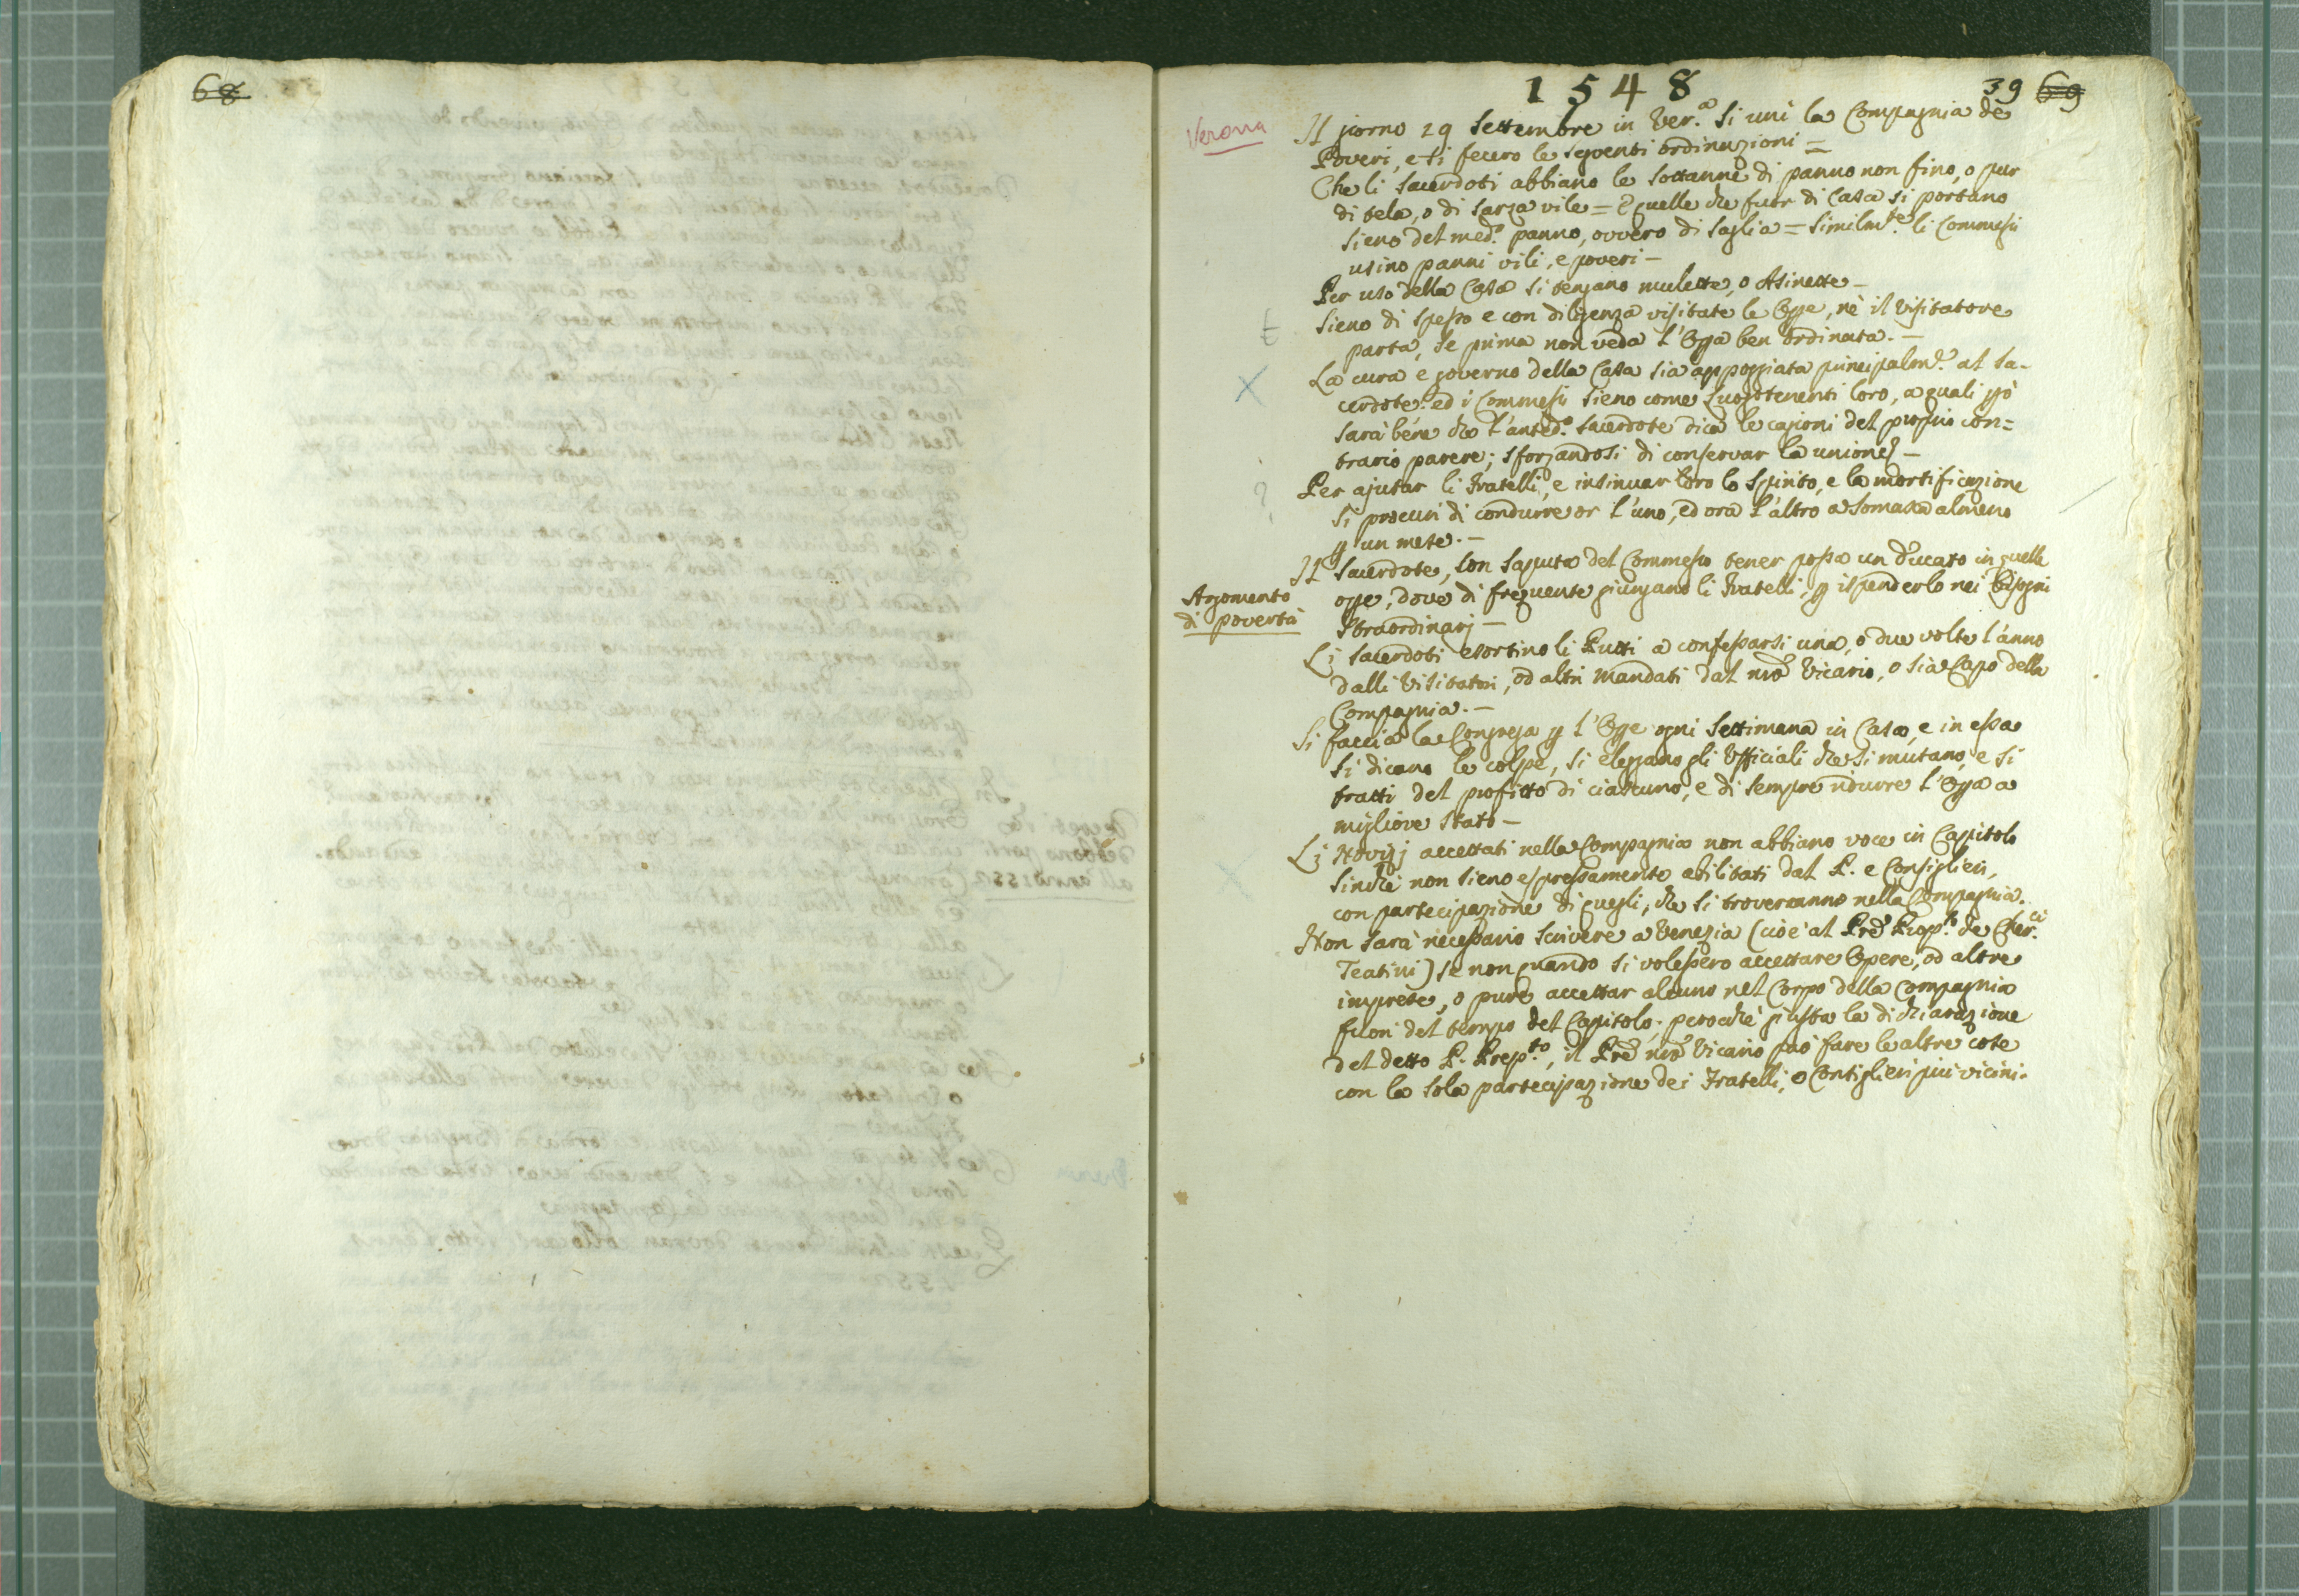 68
1548
39 69
Verona
Il giorno 29 Settembre in Ver.ª si unì la Compagnia de
Poveri, e si fecero le seguenti ordinazioni =
Che li Sacerdoti abbiano le sottanne di panno non fino, o pur
di tela, o di sarza vile = E quelle che fuor di Casa si portano
sieno del med.º panno, ovvero di saglia = Similm.te li Commessi
usino panni vili, e poveri -
Per uso della Casa si tengano mulette, o Asinette -
t
Sieno di spesso e con diligenza visitate le Ope, nè il Visitatore
parta, se prima non veda l'Opa ben ordinata. -
X
La cura e governo della Casa sia appoggiata principalm.e al Sa-
cerdote: ed i Commessi sieno come Luogotenenti loro, a quali però
sarà bene che l'anted.º Sacerdote dica le cagioni del proprio con=
trario parere; sforzandosi di conservar la unione -
?
Per ajutar li Fratelli, e insinuar loro lo Spirito, e la mortificazione
si procuri di condurre or l'uno, ed ora l'altro a Somasca almeno
p un mese. -
Il Sacerdote, con saputa del Commesso tener possa un ducato in quelle
Argomento
di povertà
ope, dove di frequente giungano li Fratelli, p ispenderlo nei bisogni
straordinarj -
Li Sacerdoti esortino li Putti a confessarsi una, o due volte l'anno
dalli Visitatori, od altri mandati dal nrõ Vicario, o sia Capo della
Compagnia. -
Si faccia la Congrega p l'Ope ogni Settimana in Casa, e in essa
si dicano le colpe, si eleggano gli Ufficiali che si mutano, e si
tratti del profitto di ciascuno, e di sempre ridurre l'Opa a
migliore stato -
X
Li Novizj accettati nella Compagnia non abbiano voce in Capitolo
sinchè non sieno espressamente abilitati dal P. e Consiglieri,
con partecipazione di quegli, che si troveranno nella Compagnia.
Non sarà necessario scrivere a Venezia (cioè al Prê Prop.to de Cher.ci
Teatini) se non quando si volessero accettare Opere, od altre
imprese, o pure accettar alcuno nel Corpo della Compagnia
fuori del tempo del Capitolo; perochè giusta la dichiarazione
del detto P. Prep.to, il Prê nrõ Vicario può fare le altre cose
con la sola partecipazione dei Fratelli, o Consiglieri più vicini.